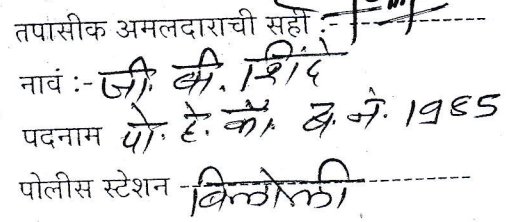 तपासीक अमलदाराची सही :-
नावं :- जी. बी. शिंदे
पदनाम पो. हे. कॉ. ब. नं. 1985
पोलीस स्टेशन - बिलोली